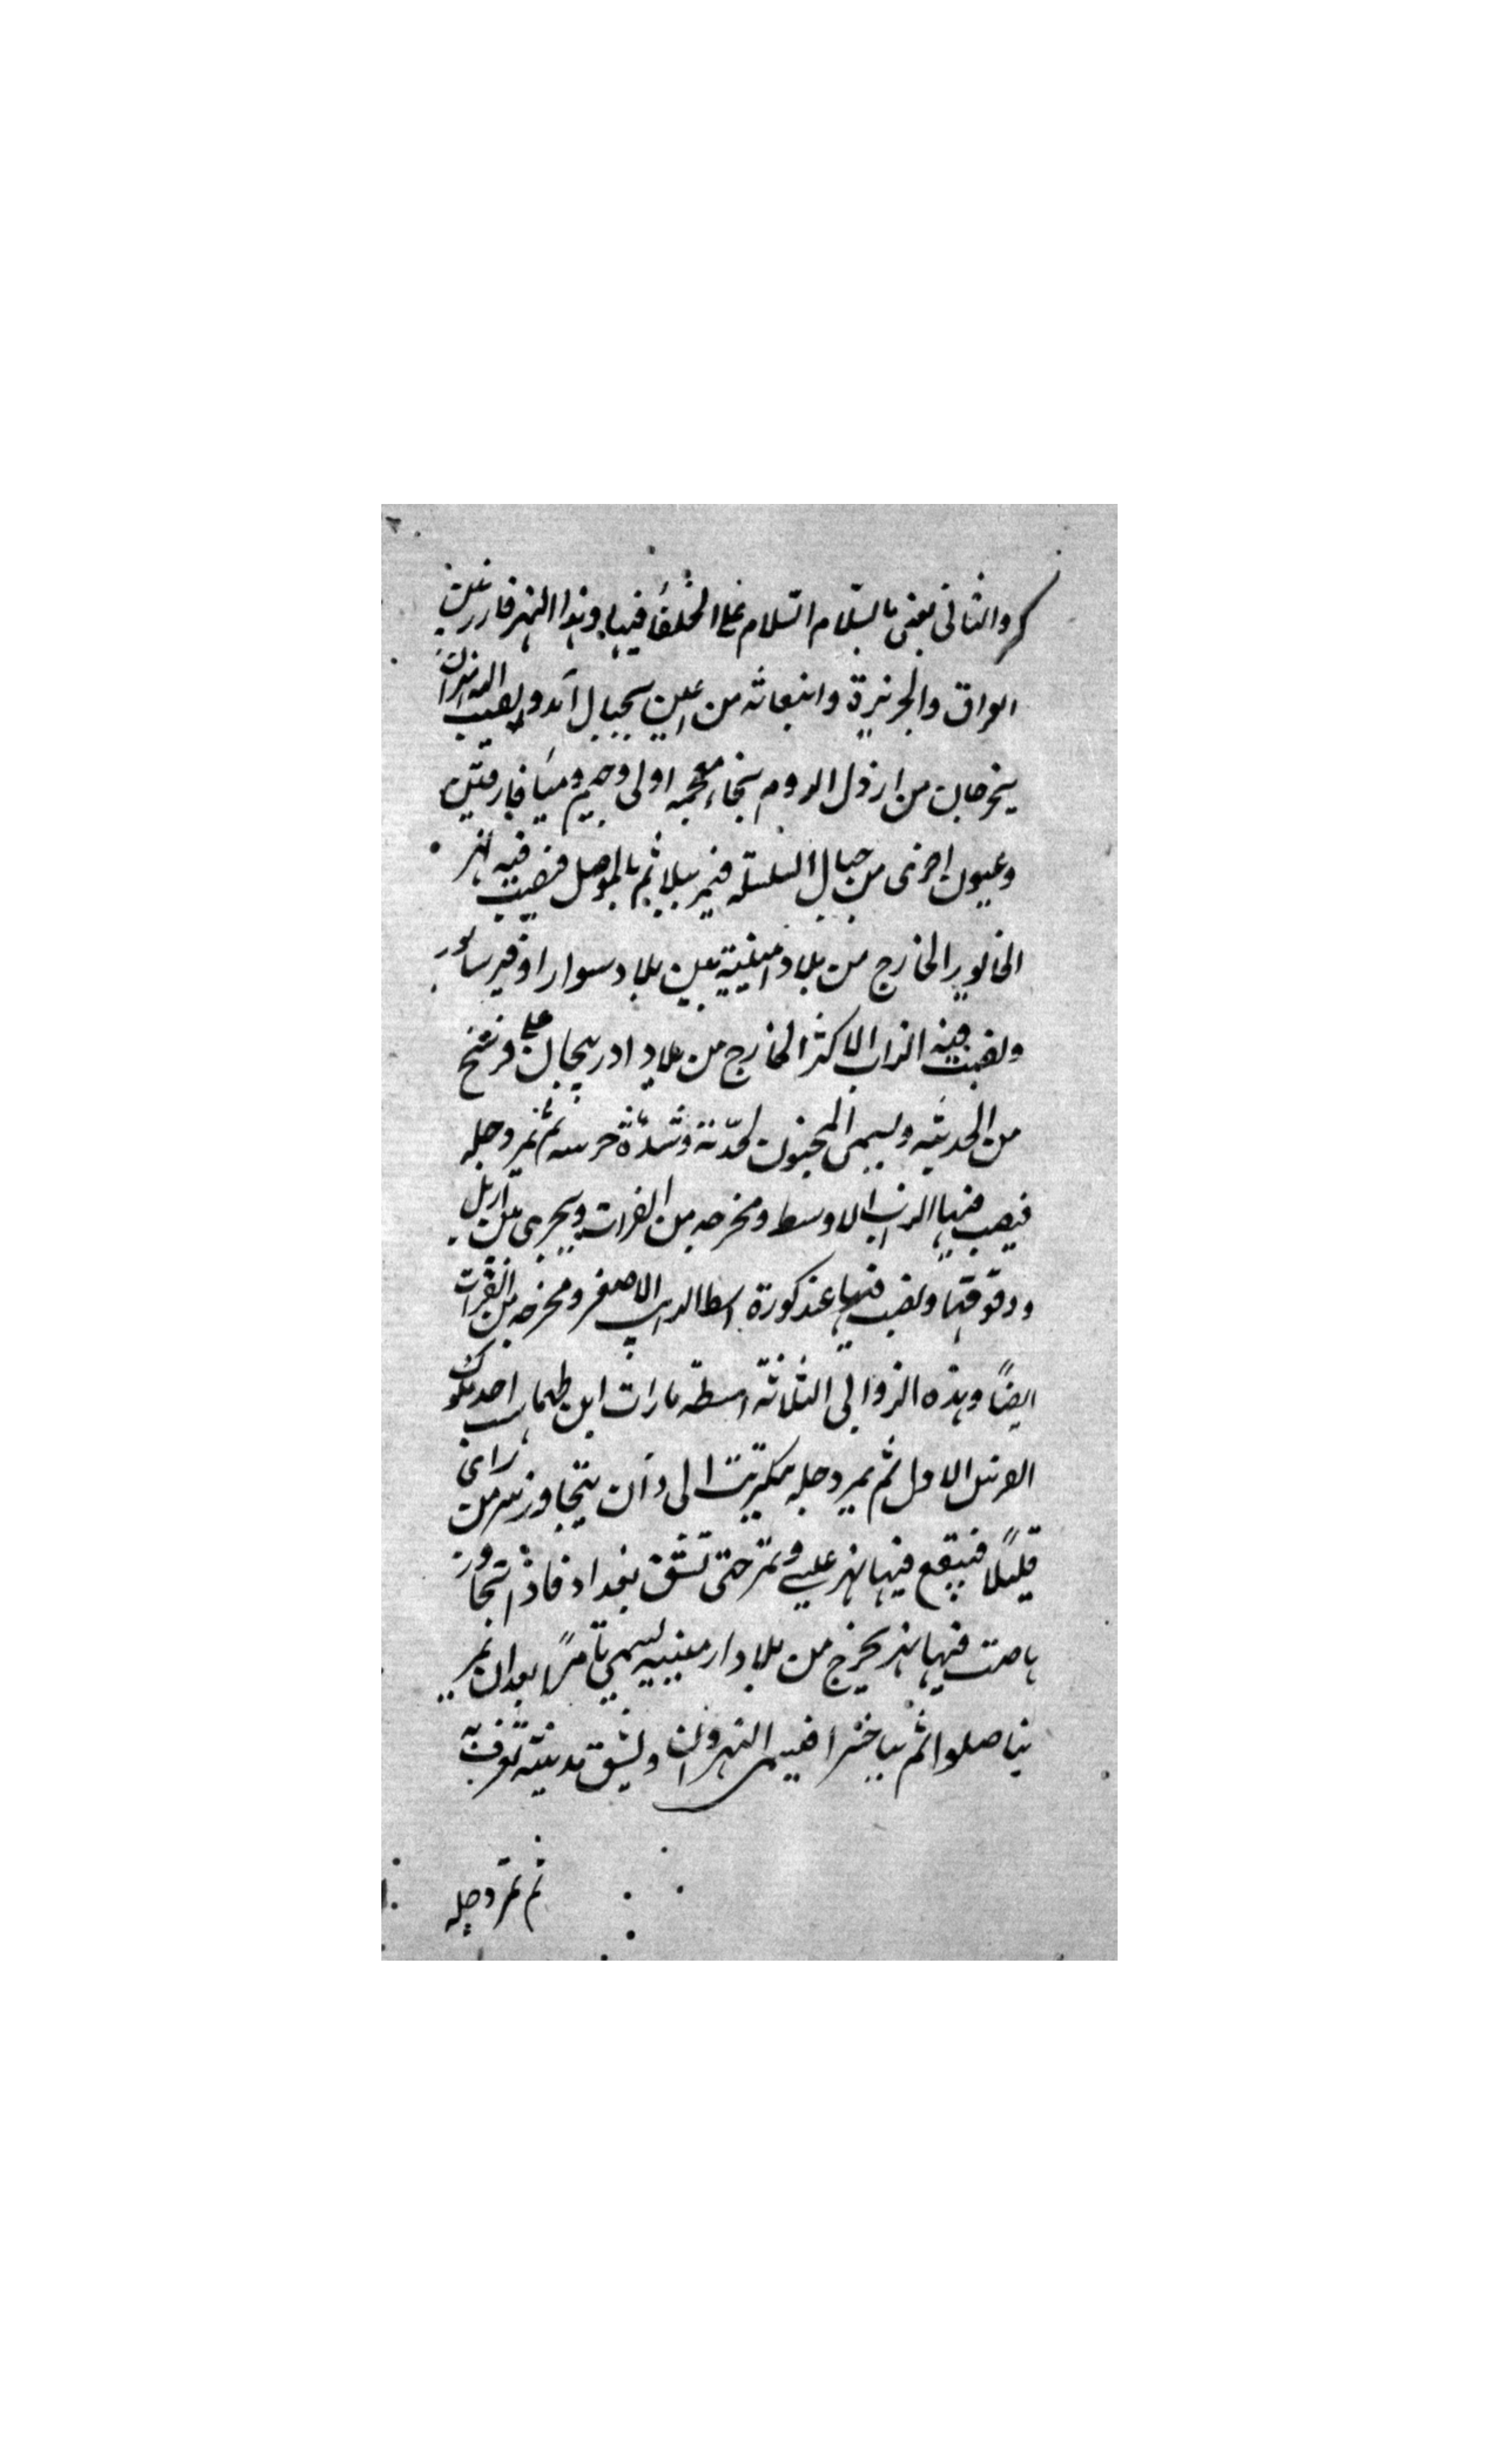 والثانى يعنى بالسلام السلام على الخلفاء فيها وهذا النهر فارز بين
العراق والجزيرة وانبعاثه من اعين بجبال آمد ويصب اليه نهران
يخرجان من ارزل الروم بخاء معجمه اولى وجيم وميافارقين
وعيون اخرى من جبال السلسله فيمر ببلد ثم بالموصل فيصب فيه نهر
الخابور الخارج من بلاد ارمينية بين بلاد سوارا وفيرسابور
ويصب فيه الزاب الاكبر الخارج من بلاد ادربيجان على فرسخ
من الحديثه ويسمى المجنون لحدّته وشدّة جريه ثم تمر دجله
فيصب فيها الزاب الاوسط ومخرجه من الفرات ويجرى بين اربل
ودقوقها ويصب فيها عند كورة الزاب الاصغر ومخرجه من الفرات
ايضًا وهذه الزوابى الثلاثة ابن طهماسب احد ملوك
الفرس الاول ثم يمر دجله بتكريت الى ان يتجاوز سر من راى
قليلًا فيقع فيها نهر عيسى وتمر حتى تشق بغداد فاذا تجاوز
ها صب فيها نهر يخرج من بلاد ارمينيه يسمى تامرّا بعد ان يمر
بباصلوا ثم بباجسرا فيسمى النهروان ويشق مدينة تعرف به
ثم تمر دجله